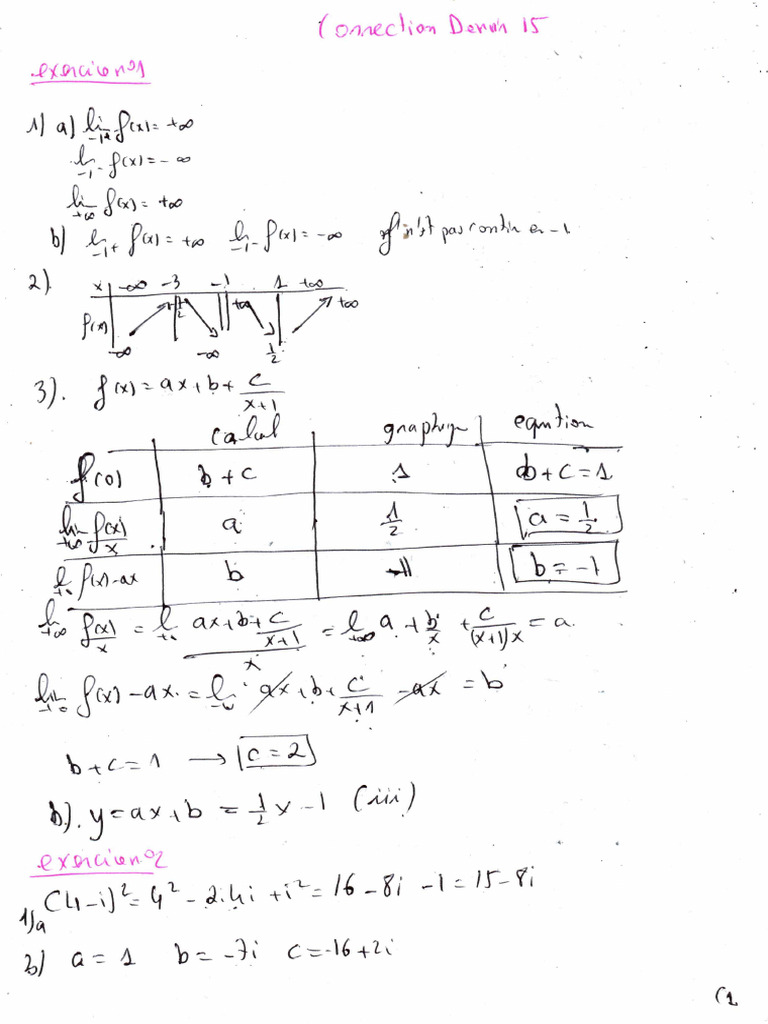 Correction Devoir 15
exercice n°1
1) a) lim -1+ f(x) = +∞
lim -1- f(x) = -∞
lim +∞ f(x) = +∞
b) lim -1+ f(x) = +∞ lim -1- f(x) = -∞ f n'est pas continue en -1
2).
x -∞ -3 -1 1 +∞
f(x) -∞ -∞ +∞ 1/2 +∞
3). f(x) = ax + b + c/(x+1)
calcul graphique equation
f(0) b + c 1 b + c = 1
lim +∞ f(x)/x a 1/2 a = 1/2
lim f(x) - ax b -1 b = -1
lim +∞ f(x)/x = lim (ax + b + c/(x+1))/x = lim +∞ a + b/x + c/((x+1)x) = a
lim f(x) - ax = lim ax + b + c/(x+1) - ax = b
b + c = 1 → c = 2
b). y = ax + b = 1/2 x - 1 (iii)
exercice n°2
1)a (4-i)² = 4² - 2.4i + i² = 16 - 8i - 1 = 15 - 8i
b) a = 1 b = -7i c = -16 + 2i
(1